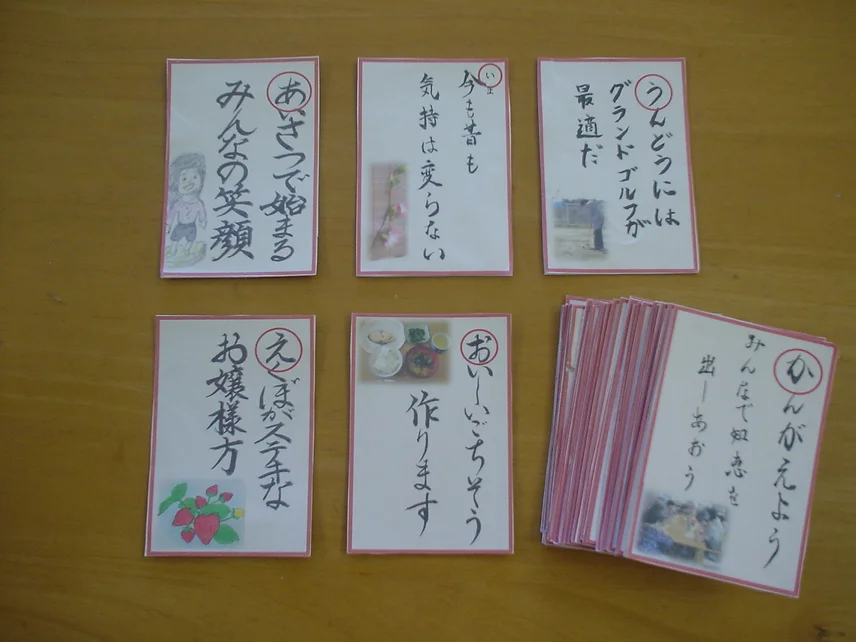 あいさつで始まる
みんなの笑顔
いま
今も昔も
気持は変らない
うんどうには
グランドゴルフが
最適だ
えくぼがステキな
お嬢様方
おいしいごちそう
作ります
かんがえよう
みんなで知恵を
出しあおう